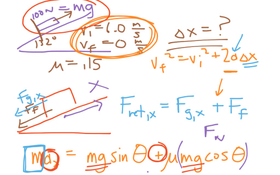 100N = mg
12°
vᵢ = 6.0 m/s
v_f = 0 m/s
Δx = ?
μ = .15
v_f² = vᵢ² + 2aΔx
X
F_g,x
F_f
F_net,x = F_g,x + F_f
F_N
ma = mg sin θ + μ(mg cos θ)